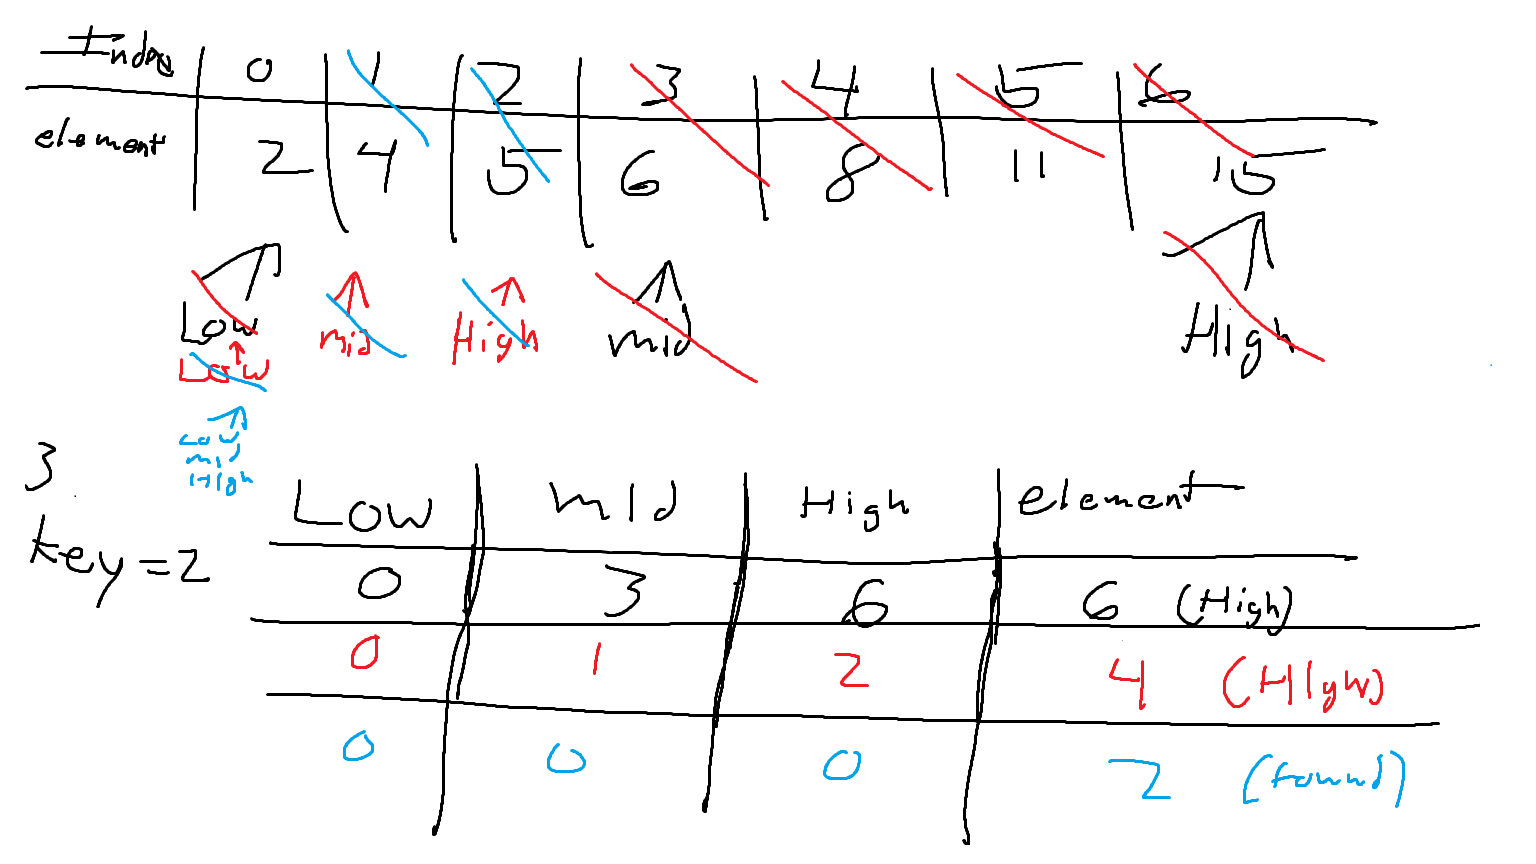 Index 0 1 2 3 4 5 6
element 2 4 5 6 8 11 15
Low mid High mid High
Low
Low
mid
High
3
key=2
Low mid High element
0 3 6 6 (High)
0 1 2 4 (High)
0 0 0 2 (found)